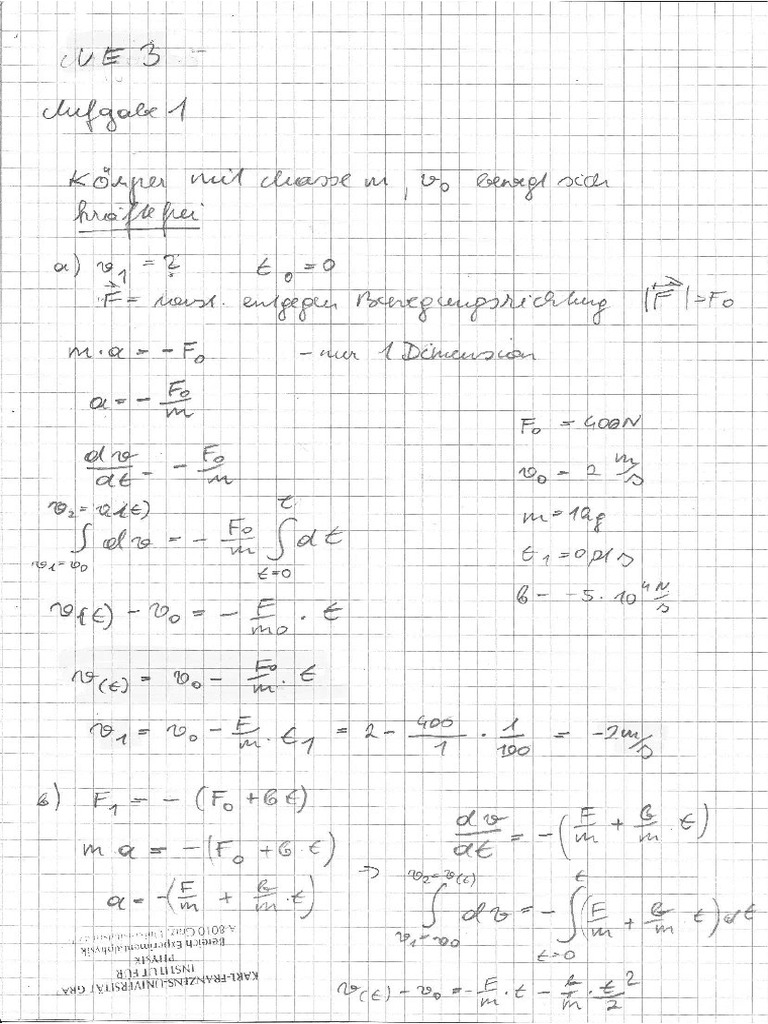 UE 3
Aufgabe 1
Körper mit Masse m, v₀ bewegt sich
kräftefrei
a) v₁ = ? t₀ = 0
F⃗ = konst. entgegen Bewegungsrichtung |F⃗| = F₀
m · a = - F₀ - nur 1 Dimension
a = - F₀/m
F₀ = 400N
dv/dt = - F₀/m
v₀ = 2 m/s
m = 1kg
∫_{v₁=v₀}^{v₂=v(t)} dv = - F₀/m ∫_{t=0}^{t} dt
t₁ = 0,01 s
b = -5 · 10⁴ N/s
v(t) - v₀ = - F/m₀ · t
v(t) = v₀ - F₀/m · t
v₁ = v₀ - F/m · t₁ = 2 - 400/1 · 1/100 = -2 m/s
b) F₁ = - (F₀ + b t)
m a = - (F₀ + b · t)
a = -(F/m + b/m · t)
⇒ dv/dt = -(F/m + b/m · t)
∫_{v₁=v₀}^{v₂=v(t)} dv = - ∫_{t=0}^{t} (F/m + b/m t) dt
v(t) - v₀ = - F/m · t - b/m · t²/2
KARL-FRANZENS-UNIVERSITÄT GRAZ
INSTITUT FÜR
PHYSIK
Bereich Experimentalphysik
A-8010 Graz, Universitätsplatz